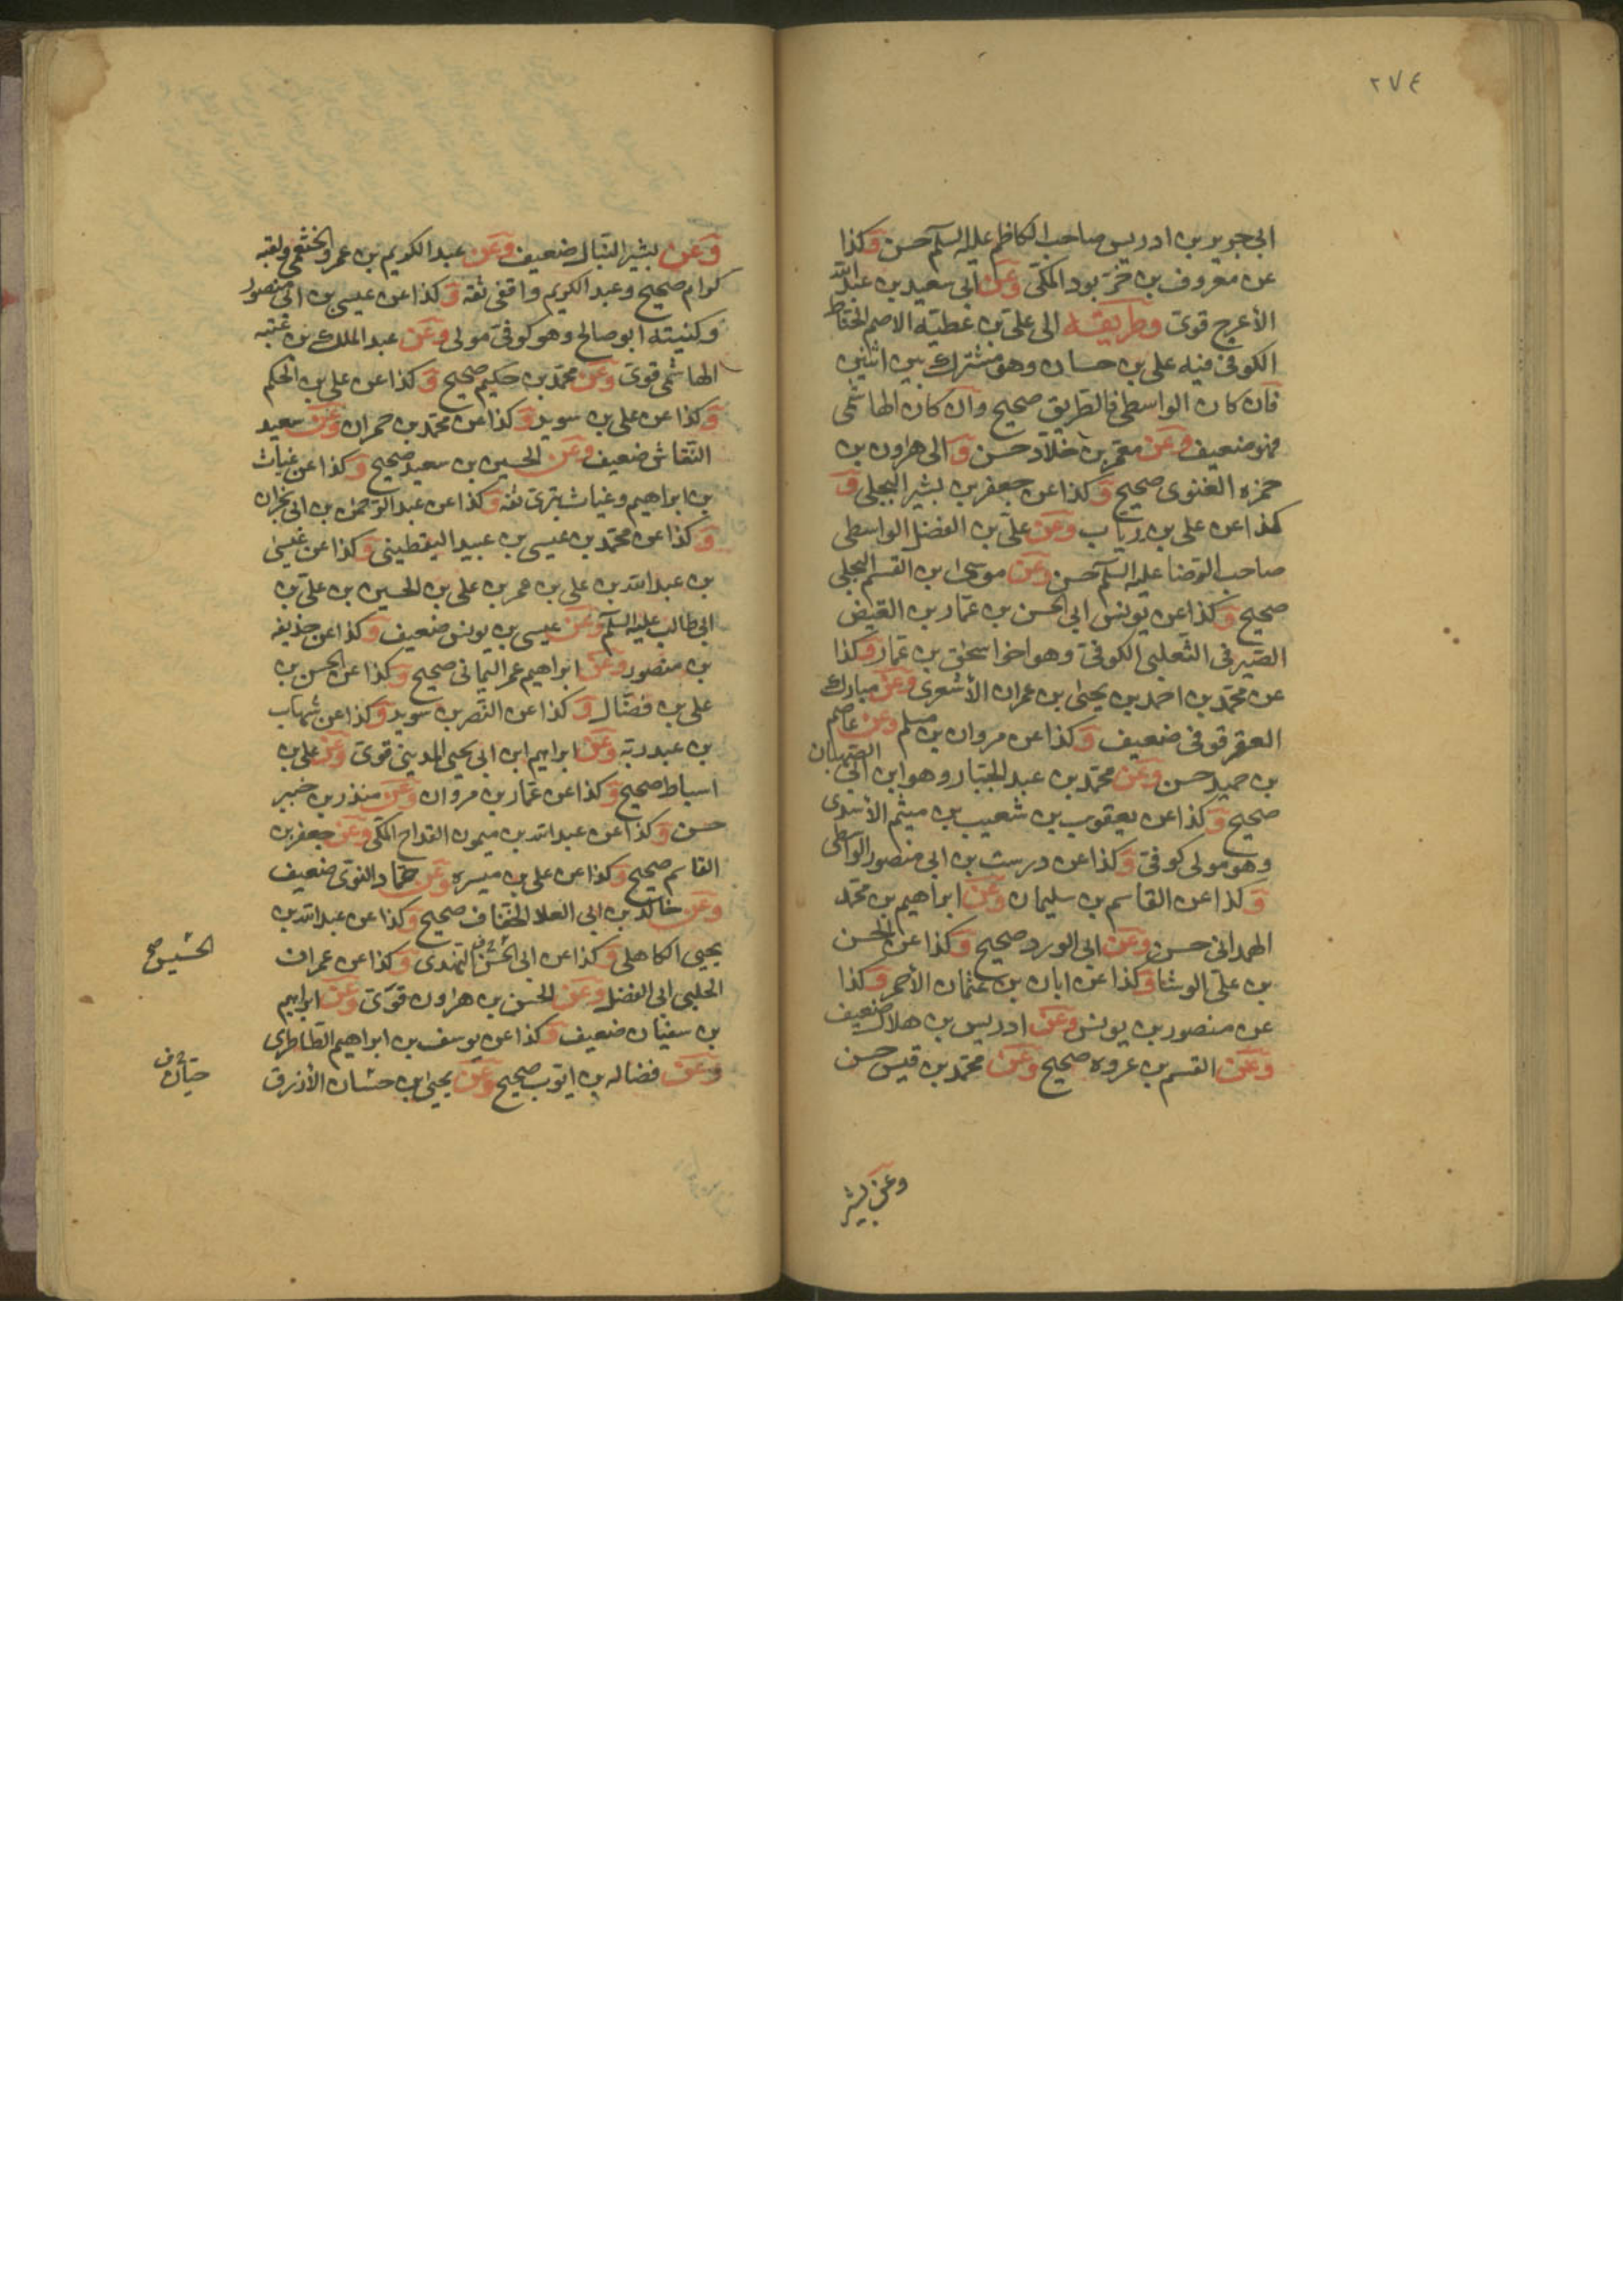 ٢٧٤
ابى جرير بن ادريس صاحب الكاظم عليه السلم حسن وكذا
عن معروف بن خربوذ المكى وعن ابى سعيد بن عبد الله
الأعرج قوى وطريقه الى على بن عطيه الاصم الحناط
الكوفى فيه على بن حسان وهو مشترك بين اثنين
فان كان الواسطى فالطريق صحيح وان كان الهاشمى
فهو ضعيف وعن معمر بن خلاد حسن والى هرون بن
حمزه الغنوى صحيح وكذا عن جعفر بن بشير البجلى و
كذا عن على بن رياب وعن على بن الفضل الواسطى
صاحب الرضا عليه السلم حسن وعن موسى بن القسم البجلى
صحيح وكذا عن يونس ابى الحسن بن عمار بن الفيض
الصيرفى الثعلبى الكوفى وهو اخو اسحق بن عمار وكذا
عن محمد بن احمد بن يحيى بن عمران الأشعرى وعن مبارك
العقرقوفى ضعيف وكذا عن مروان بن مسلم وعن عاصم
بن حميد حسن وعن محمد بن عبد الجبار وهو ابن ابى الصهبان
صحيح وكذا عن يعقوب بن شعيب بن ميثم الأسدى
وهو مولى كوفى وكذا عن درست بن ابى منصور الواسطى
وكذا عن القاسم بن سليمان وعن ابراهيم بن محمد
الهمدانى حسن وعن ابى الورد صحيح وكذا عن الحسن
بن على الوشا وكذا عن ابان بن عثمان الأحمر وكذا
عن منصور بن يونس وعن ادريس بن هلال ضعيف
وعن القسم بن عروه صحيح وعن محمد بن قيس حسن
وعن بشير
وعن بشير النبال ضعيف وعن عبد الكريم بن عمرو الخثعمى ولقبه
كرام صحيح وعبد الكريم واقفى ثقه وكذا عن عيسى بن ابى منصور
وكنيته ابو صالح وهو كوفى مولى وعن عبد الملك بن عتبه
الهاشمى قوى وعن محمد بن حكيم صحيح وكذا عن على بن الحكم
وكذا عن على بن سويد وكذا عن محمد بن حمران وعن سعيد
النقاش ضعيف وعن الحسين بن سعيد صحيح وكذا عن غياث
بن ابراهيم وغياث بترى ثقه وكذا عن عبد الرحمن بن ابى نجران
وكذا عن محمد بن عيسى بن عبيد اليقطينى وكذا عن عيسى
بن عبد الله بن على بن عمر بن على بن الحسين بن على بن
ابى طالب عليه السلم وعن عيسى بن يونس ضعيف وكذا عن حذيفه
بن منصور وعن ابراهيم عمر اليمانى صحيح وكذا عن الحسن بن
على بن فضال وكذا عن النضر بن سويد وكذا عن شهاب
بن عبد ربه وعن ابراهيم ابن ابى يحيى المدينى قوى وعن على بن
اسباط صحيح وكذا عن عمار بن مروان وعن منذر بن جيفر
حسن وكذا عن عبد الله بن ميمون القداح المكى وعن جعفر بن
القاسم صحيح وكذا عن على بن ميسره وعن حماد النوى ضعيف
وعن خالد بن ابى العلا الخفاف صحيح وكذا عن عبد الله بن
يحيى الكاهلى وكذا عن ابى النهدى وكذا عن عمران
الحلبى ابى الفضل وعن الحسن بن هرون قوى وعن ابراهيم
بن سفيان ضعيف وكذا عن يوسف بن ابراهيم الطاطرى
وعن فضاله بن ايوب صحيح وعن يحيى بن حسان الأزرق